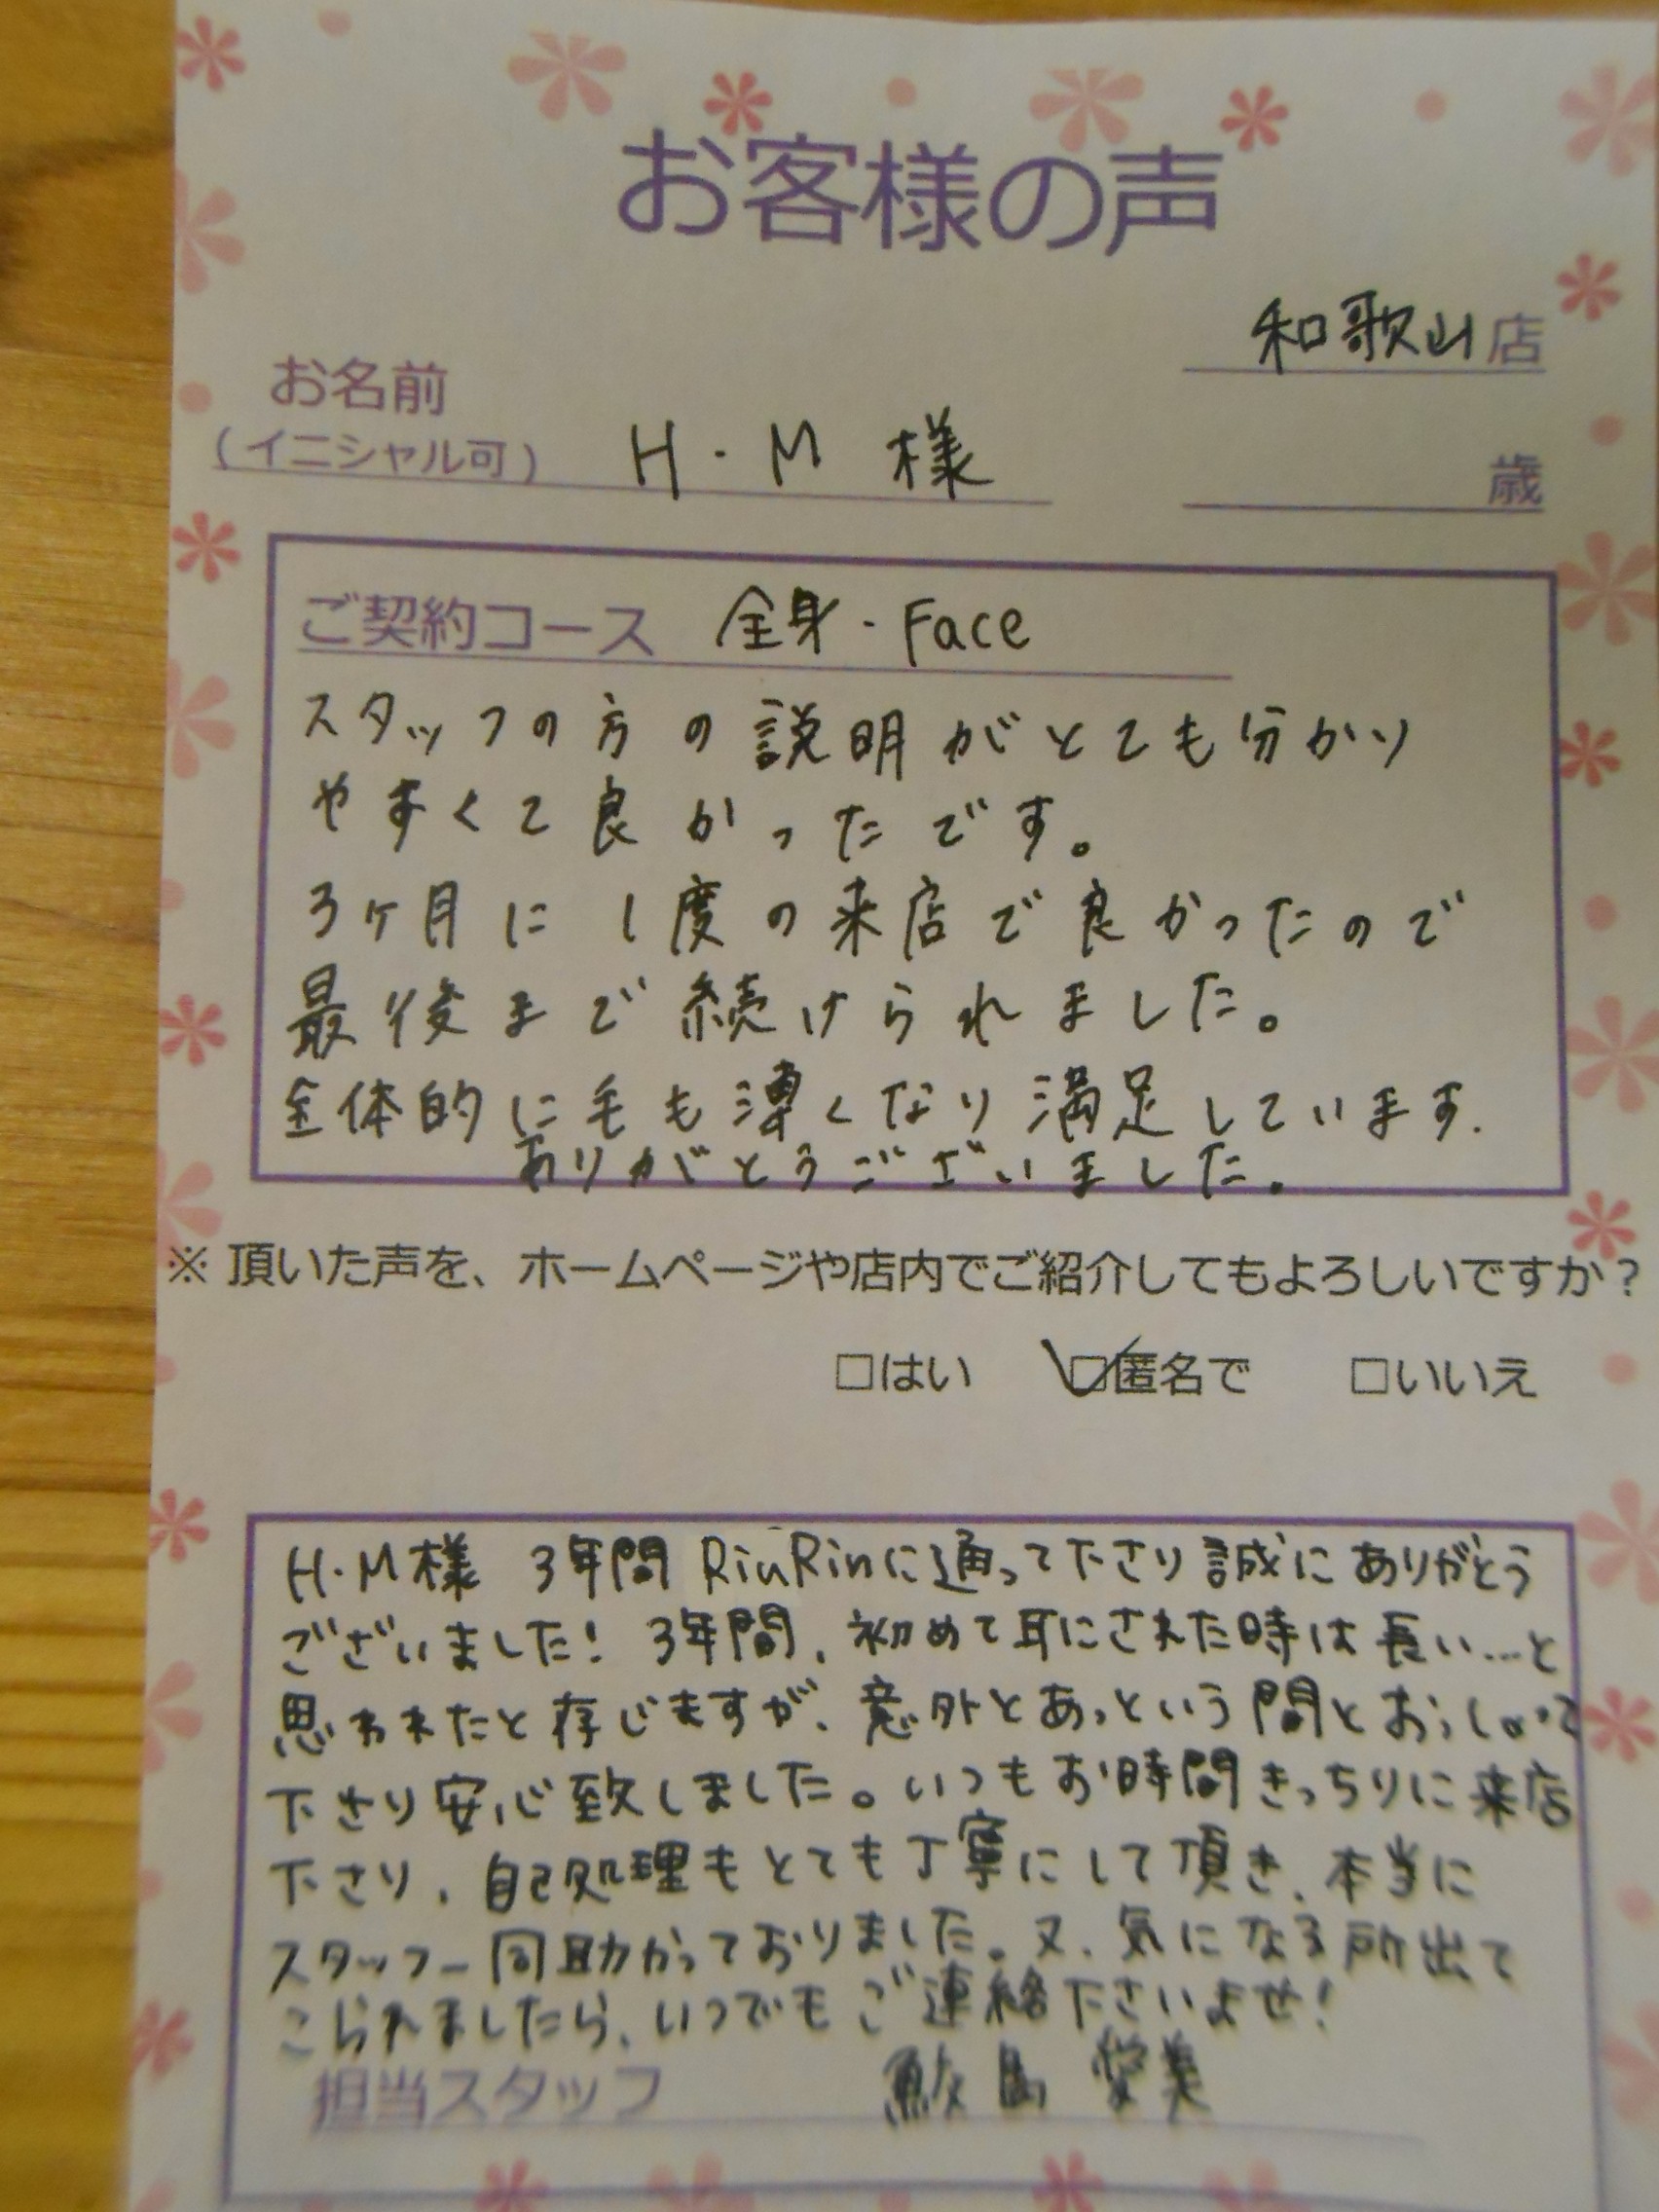 お客様の声
和歌山店
お名前
(イニシャル可) H・M 様
歳
ご契約コース 全身・Face
スタッフの方の説明がとても分かり
やすくて良かったです。
3ヶ月に1度の来店で良かったので
最後まで続けられました。
全体的に毛も薄くなり満足しています.
ありがとうございました。
※ 頂いた声を、ホームページや店内でご紹介してもよろしいですか?
□はい ☑匿名で □いいえ
H・M様 3年間 RinRinに通って下さり誠にありがとう
ございました! 3年間、初めて耳にされた時は長い…と
思われたと存じますが、意外とあっという間とおっしゃって
下さり安心致しました。いつもお時間きっちりに来店
下さり、自己処理もとても丁寧にして頂き、本当に
スタッフ一同助かっておりました。又、気になる所出て
こられましたら、いつでもご連絡下さいませ!
担当スタッフ 鮫島 愛美